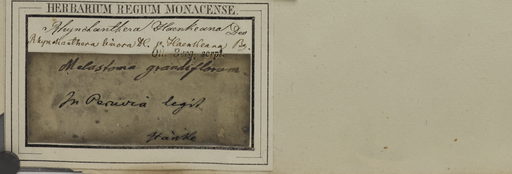 HERBARIUM REGIUM MONACENSE.
Rhynchanthera Haenkeana Dec
Rhynchanthera bicora DC. β. Haenkeana
Det. scrps.
Melastoma grandiflorum.
In Peruvia legit
Hänke